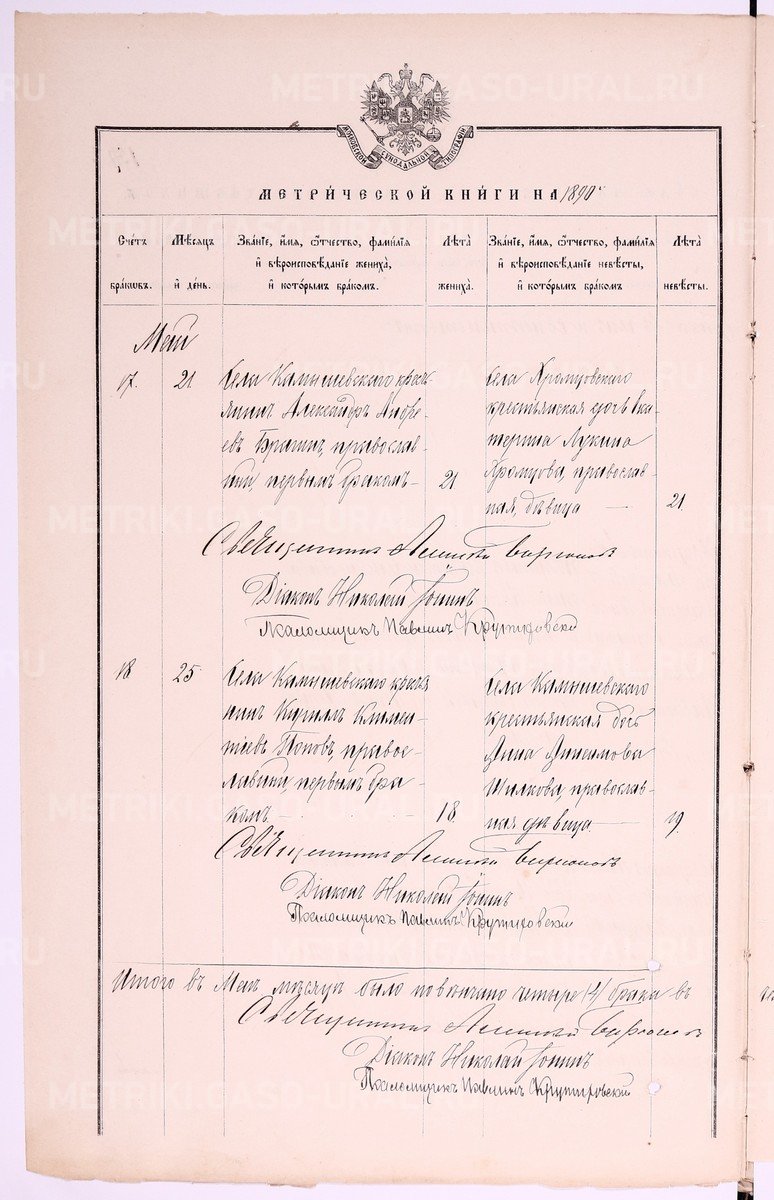 МОСКОВСКОЙ СѴНОДАЛЬНОЙ ТИПОГРАФІИ
МЕТРИ́ЧЕСКОЙ КНИ́ГИ НА 1890 г.
Сче́тъ бра́кѡвъ.
Мѣ́сяцъ и҆ де́нь.
Зва́нїе, и҆́мя, ѻ҆́тчество, фами́лїя
и҆ вѣроисповѣ́данїе жениха̀,
и҆ кото́рымъ бра́комъ.
Лѣ́та жениха̀.
Зва́нїе, и҆́мя, ѻ҆́тчество, фами́лїя
и҆ вѣроисповѣ́данїе невѣ́сты,
и҆ кото́рымъ бра́комъ
Лѣ́та невѣ́сты.
Май
17. 21
Села Камышевскаго крес-
янинъ Александръ Андре-
евъ Брагинъ, православ-
ный, первымъ бракомъ
21
Села Хромцовскаго
крестьянская дочь Ека-
терина Лукина
Хромцова, православ-
ная, дѣвица
21.
Священникъ
Діаконъ Николай Іонинъ
Псаломщикъ Павлинъ
18 25
Села Камышевскаго крестья
нинъ Кирилъ Климен-
тіевъ Поповъ, правос-
лавный, первымъ бра-
комъ
18.
Села Камышевскаго
крестьянская дочь
Анна Анисимова
Шилкова, православ-
ная дѣвица
19.
Священникъ
Діаконъ Николай Іонинъ
Псаломщикъ Павлинъ
Итого въ Маѣ мѣсяцѣ было повѣнчано четыре (4) брака
Священникъ
Діаконъ Николай Іонинъ
Псаломщикъ Павлинъ
METRIKI.GASO-URAL.RU